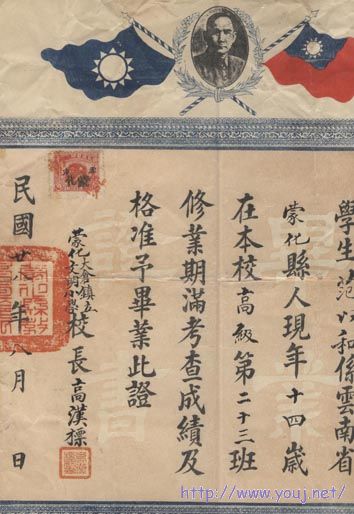 學生范以和係雲南省
蒙化縣人現年十四歲
在本校高級第二十三班
修業期滿考查成績及
格准予畢業此證
校長高漢標
民國廿年八月日
畢業
證書
http://www.youj.net/